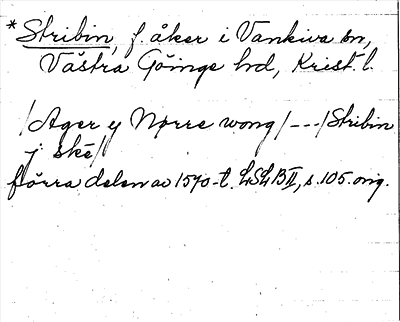 *Stribin, f. åker i Vankiva sn,
Västra Göinge hd, Krist. l.
/Ager y Nørre wong/---/Stribin
j ské/
förra delen av 1570-t. LSLB II, s. 105. orig.